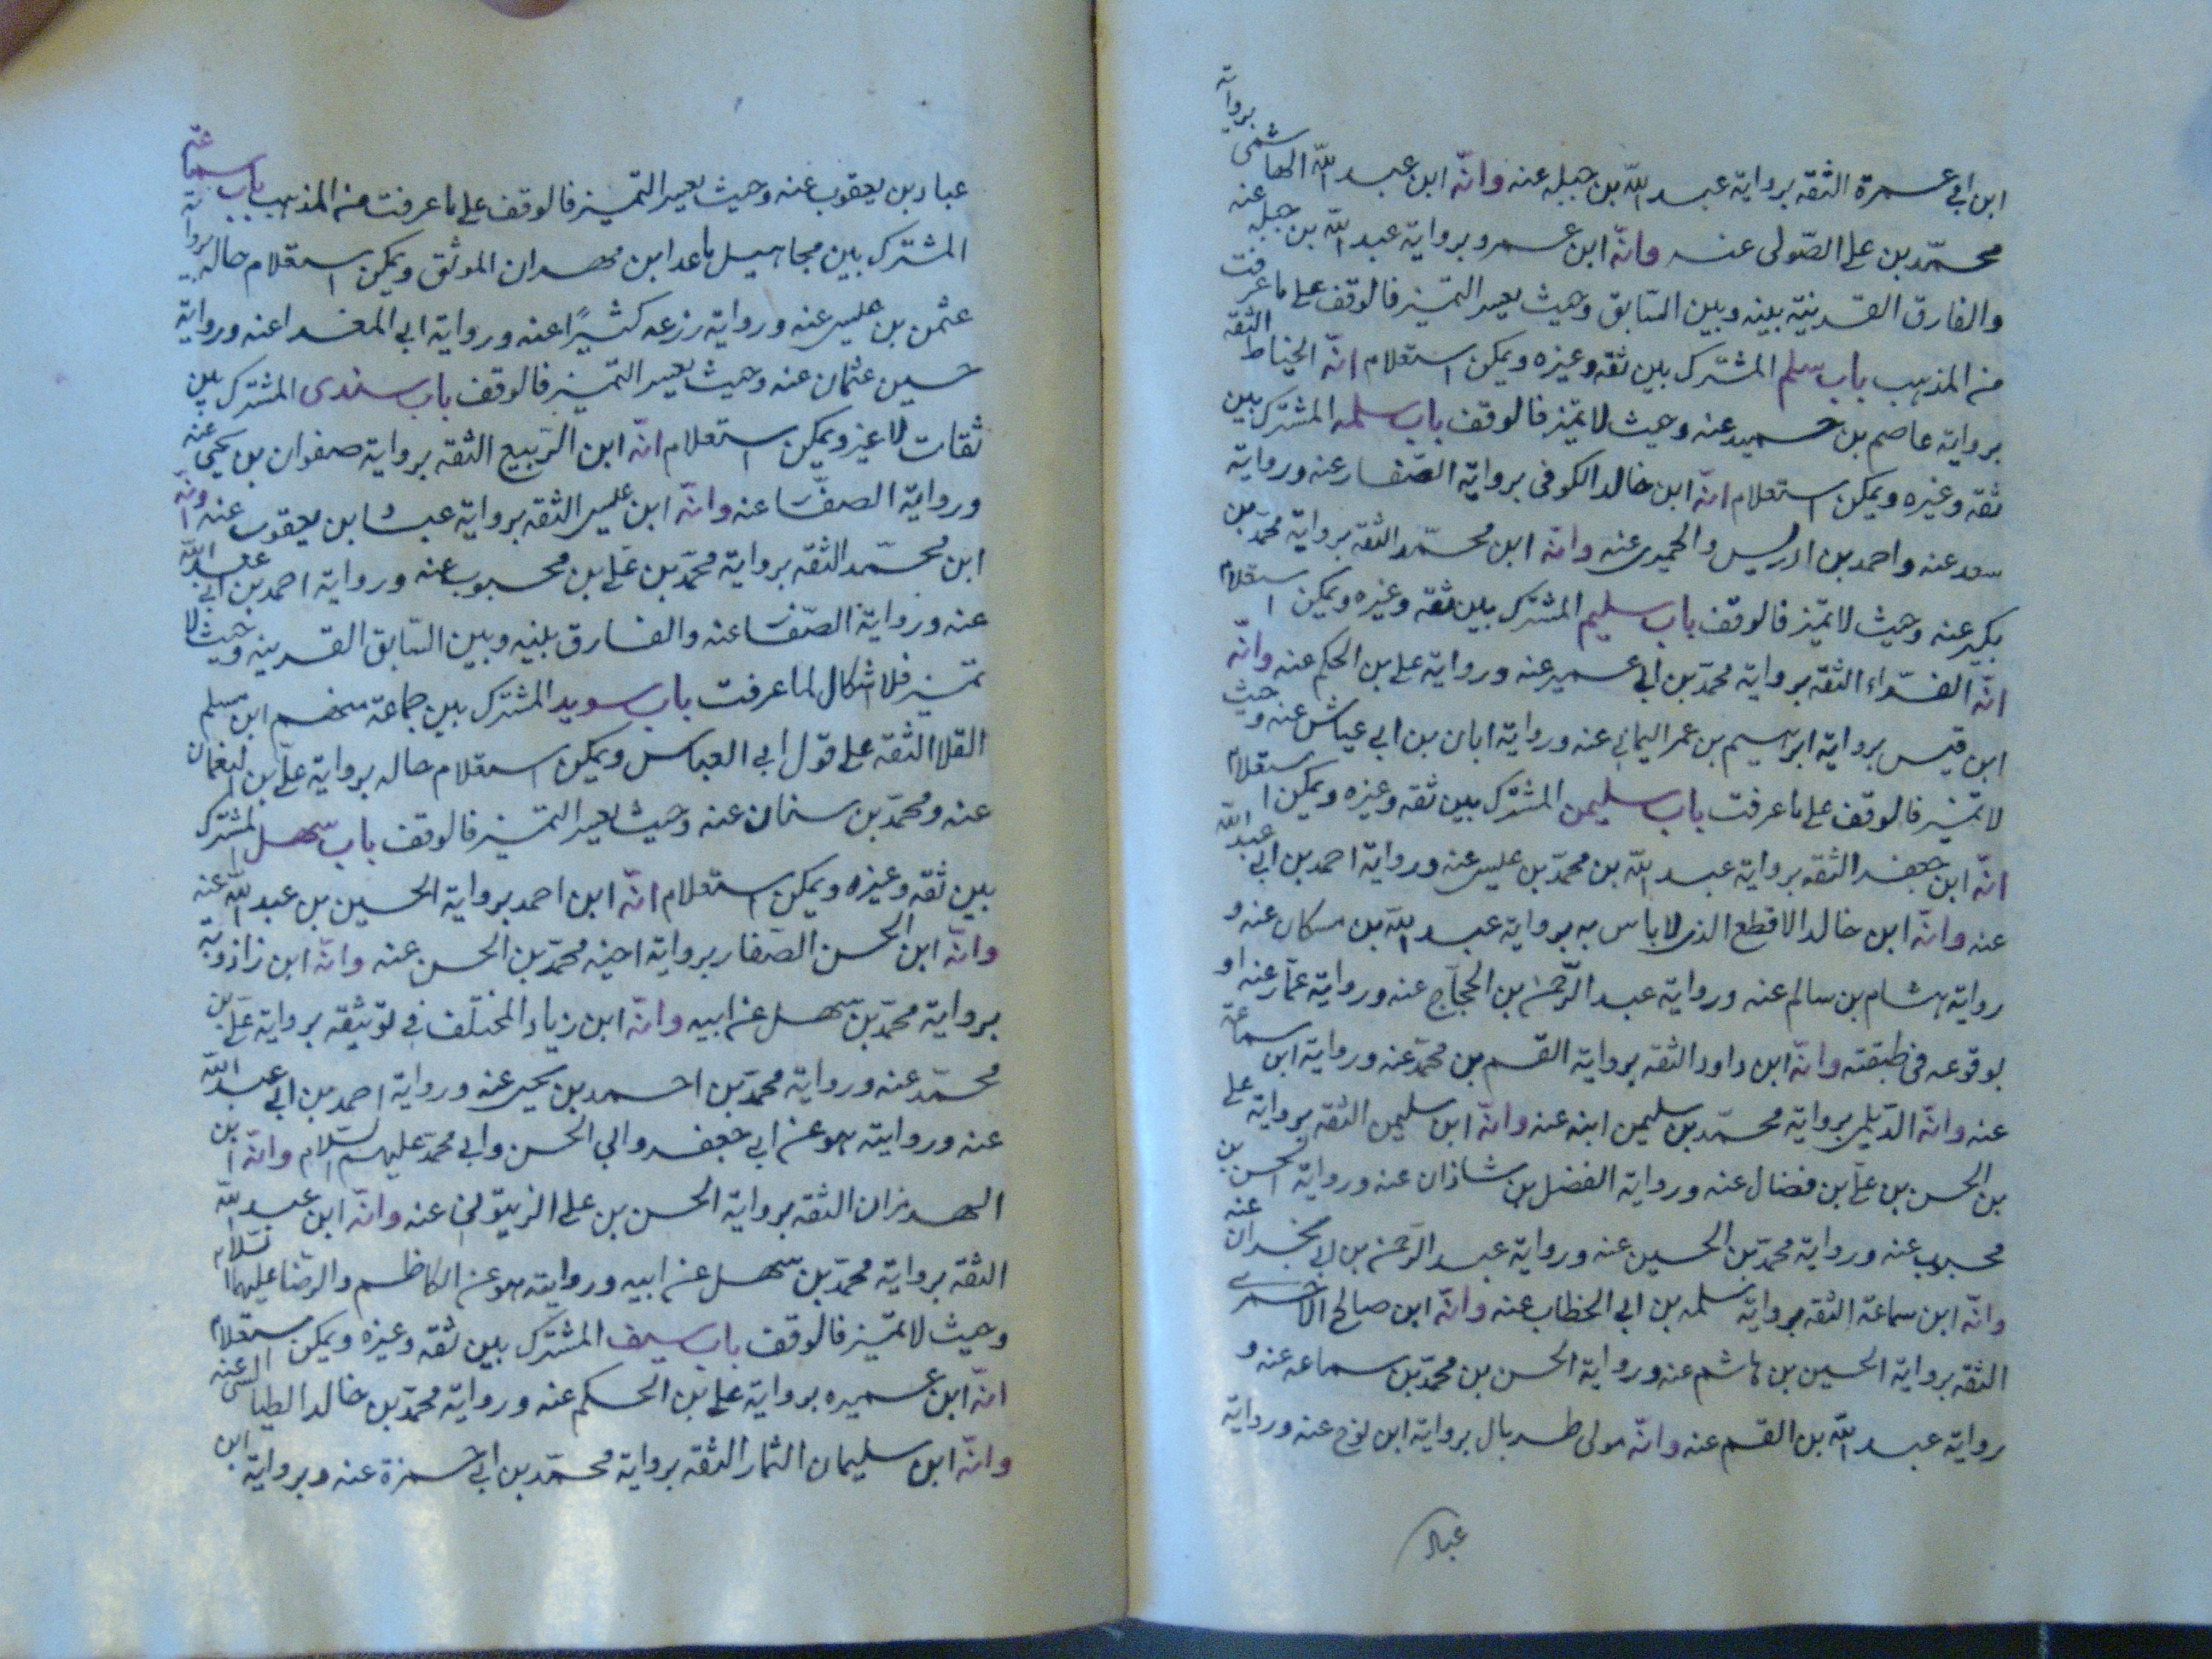 ابن ابي عمرة الثقه برواية عبد الله بن جبله عنه وانّه ابن عبد الله الهاشمى برواية
محمّد بن على الصّولى عنه وانّه ابن عمرو برواية عبد الله بن جبله عنه
والفارق القرينة بينه وبين السّابق وحيث يعسر التميّز فالوقف على ما عرفت
من المذهب باب سلم المشترك بين ثقه وغيره ويمكن استعلام انّه الحناط الثقه
برواية عاصم بن حميد عنه وحيث لا تميّز فالوقف باب سلمه المشترك بين
ثقه وغيره ويمكن استعلام انّه ابن خالد الكوفى برواية الصّفار عنه ورواية
سعد عنه واحمد بن ادريس والحميرى عنه وانّه ابن محمّد الثقه برواية محمّد بن
بكير عنه وحيث لا تميّز فالوقف باب سليم المشترك بين ثقه وغيره ويمكن استعلام
انّه الفرّاء الثقه برواية محمّد بن ابي عمير عنه ورواية على بن الحكم عنه وانّه
ابن قيس برواية ابراهيم بن عمر اليماني عنه ورواية ابان بن ابي عياش عنه وحيث
لا تميّز فالوقف على ما عرفت باب سليمن المشترك بين ثقه وغيره ويمكن استعلام
انّه ابن جعفر الثقه برواية عبد الله بن محمّد بن عليسى عنه ورواية احمد بن ابي عبد الله
عنه وانّه ابن خالد الاقطع الذى لا باس به برواية عبد الله بن مسكان عنه و
رواية هشام بن سالم عنه ورواية عبد الرّحمن بن الحجّاج عنه ورواية عمّار عنه او
بوقوعه فى طبقته وانّه ابن داود الثقه برواية القسم بن محمّد عنه ورواية ابن سماعة
عنه وانّه الدّيلمى برواية محمّد بن سليمن ابنه عنه وانّه ابن سليمن الثقه برواية على
بن الحسن بن علىّ بن فضال عنه ورواية الفضل بن شاذان عنه ورواية الحسن بن
محبوب عنه ورواية محمّد بن الحسين عنه ورواية عبد الرّحمن بن ابي نجران عنه
وانّه ابن سماعة الثقه برواية سلمه بن ابي الخطاب عنه وانّه ابن صالح الاحمرى
الثقه برواية الحسين بن هاشم عنه ورواية الحسن بن محمّد بن سماعه عنه و
رواية عبد الله بن القسم عنه وانّه مولى طربال برواية ابن نوح عنه ورواية
عباد
عباد بن يعقوب عنه وحيث يعسر التميّز فالوقف على ما عرفت من المذهب باب سماعة
المشترك بين مجاهيل ما عدا ابن مهران الموثق ويمكن استعلام حاله برواية
عثمن بن عليسى عنه ورواية زرعه كثيرًا عنه ورواية ابي المغرا عنه ورواية
حسين عثمان عنه وحيث يعسر التميّز فالوقف باب سندى المشترك بين
ثقات لا غير ويمكن استعلام انّه ابن الرّبيع الثقه برواية صفوان بن يحيى عنه
ورواية الصفّار عنه وانّه ابن عليسى الثقه برواية عباد ابن يعقوب عنه وانّه
ابن محمّد الثقه برواية محمّد بن علىّ بن محبوب عنه ورواية احمد بن ابي عبد الله
عنه ورواية الصّفار عنه والفارق بينه وبين السّابق القرينه وحيث لا
تميّز فلا اشكال لما عرفت باب سويد المشترك بين جماعة منهم ابن مسلم
القلا الثقه على قول ابي العباس ويمكن استعلام حاله برواية علىّ بن النعمان
عنه ومحمّد بن سنان عنه وحيث يعسر التميّز فالوقف باب سهل المشترك
بين ثقه وغيره ويمكن استعلام انّه ابن احمد برواية الحسين بن عبد الله عنه
وانّه ابن الحسن الصّفار برواية اخيه محمّد بن الحسن عنه وانّه ابن زاذويه
برواية محمّد بن سهل عن ابيه وانّه ابن زياد المختلف في توثيقه برواية علىّ بن
محمّد عنه ورواية محمّد بن احمد بن يحيى عنه ورواية احمد بن ابي عبد الله
عنه وروايته هو عن ابي جعفر وابي الحسن وابي محمّد عليهم السّلام وانّه ابن
الهرمزان الثقه برواية الحسن بن على الزيتوني عنه وانّه ابن عبد الله
الثقه برواية محمّد بن سهل عن ابيه وروايته هو عن الكاظم والرضا عليهما السّلام
وحيث لا تميّز فالوقف باب سيف المشترك بين ثقه وغيره ويمكن استعلام
انّه ابن عميره برواية على بن الحكم عنه ورواية محمّد بن خالد الطيالسى عنه
وانّه ابن سليمان التمار الثقه برواية محمّد بن ابي حمزة عنه وبرواية ابن